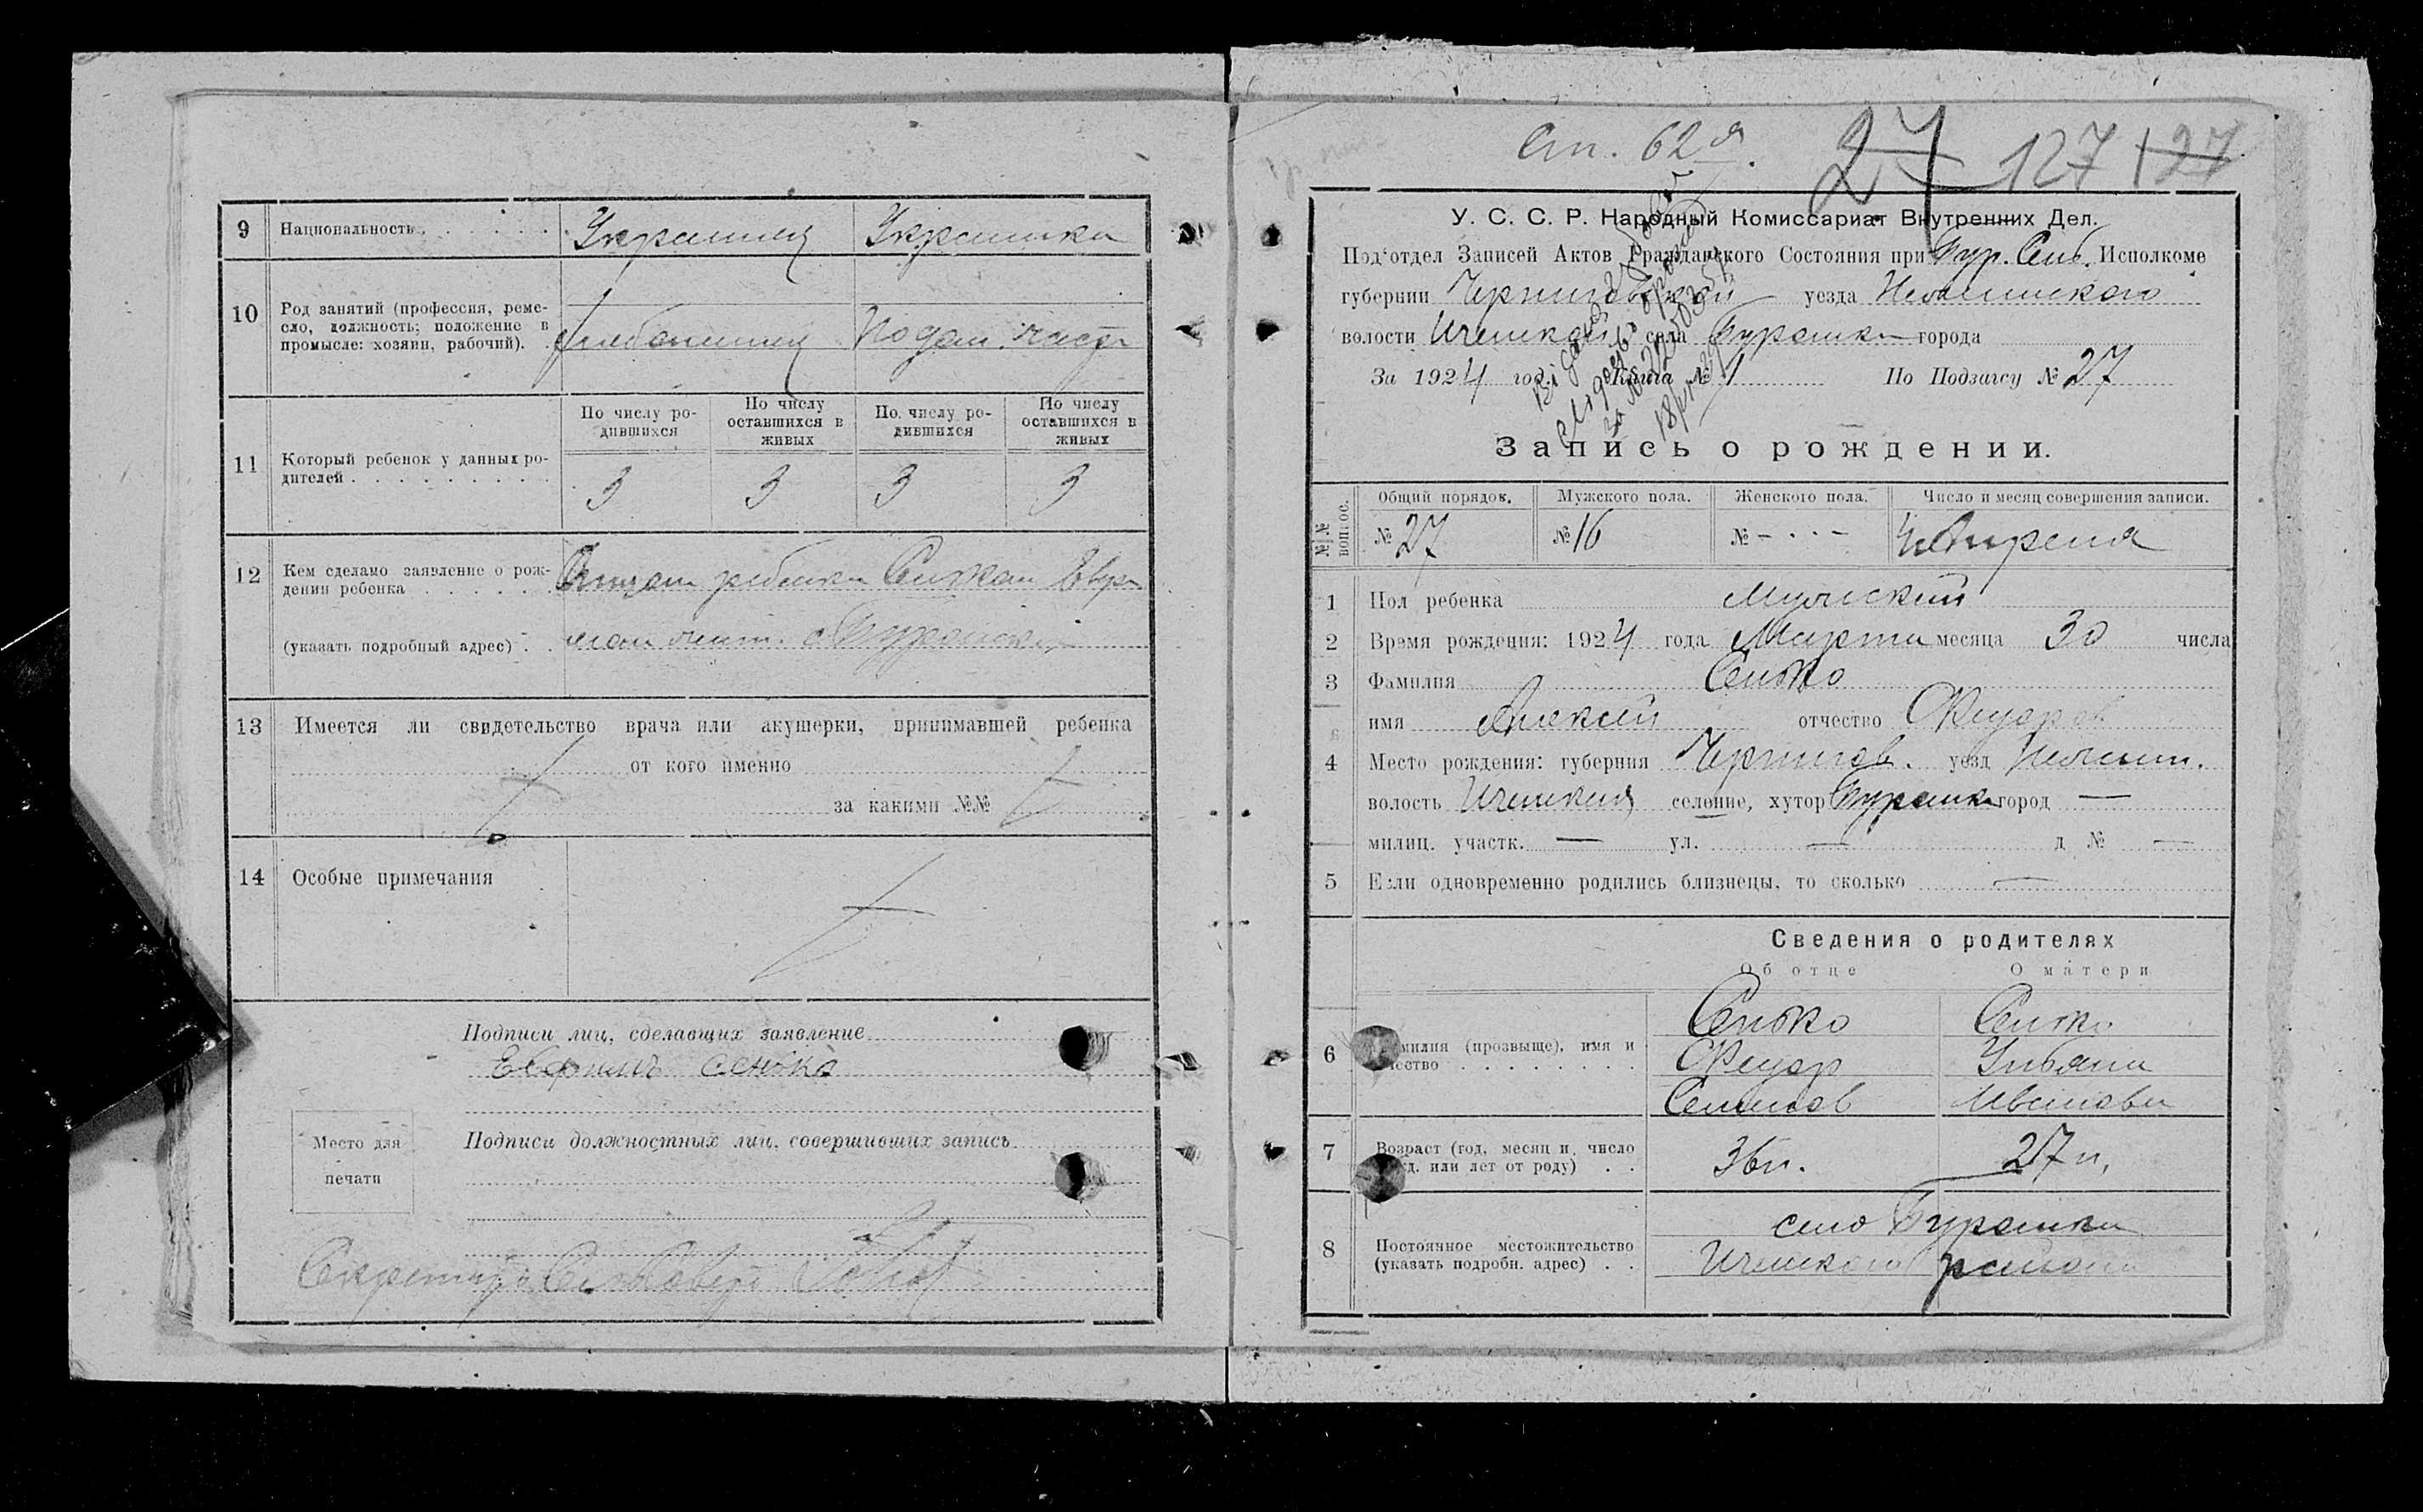 9 Национальность Украинец Украинка
10 Род занятий (профессия, реме-
сло, должность; положение в
промысле: хозяин, рабочий). Хлебопашец По дом. част.
11 Который ребенок у данных ро-
дителей
По числу ро-
дившихся
По числу
оставшихся в
живых
По числу ро-
дившихся
По числу
оставшихся в
живых
3 3 3 3
12 Кем сделано заявление о рож-
дении ребенка
(указать подробный адрес)
ребенка
13 Имеется ли свидетельство врача или акушерки, принимавшей ребенка
от кого именно
за какими №№
14 Особые примечания
Подписи лиц, сделавших заявление
сенько
Место для
печати
Подписи должностных лиц, совершивших запись
Секретарь
Ст. 62 я.
27 127 127
У. С. С. Р. Народный Комиссариат Внутренних Дел.
Под‘отдел Записей Актов Гражданского Состояния при Бур. Сель. Исполкоме
губернии Черниговской уезда Нежинского
волости Иченской села Бурошки города
За 1924 год. Книга № 1 По Подзагсу № 27
Запись о рождении.
№№ вопрос.
Общий порядок. Мужского пола. Женского пола. Число и месяц совершения записи.
№ 27 № 16 № - · · - 4 Апреля
1 Пол ребенка Мужский
2 Время рождения: 1924 года Марта месяца 30 числа
3 Фамилия Сенько
имя Алексей отчество Федоров
4 Место рождения: губерния Чернигов. уезд Нежин.
волость Иченская селение, хутор город —
милиц. участк. — ул. — д № —
5 Если одновременно родились близнецы, то сколько —
Сведения о родителях
Об отце О матери
6 Фамилия (прозвыще), имя и
отчество
Сенько Сенько
Федор Ульяна
Семенов Иванова
7 Возраст (год, месяц и число
рожд. или лет от роду) 36 л. 27 л.
8 Постоянное местожительство
(указать подробн. адрес)
село Бурошки
Иченского района